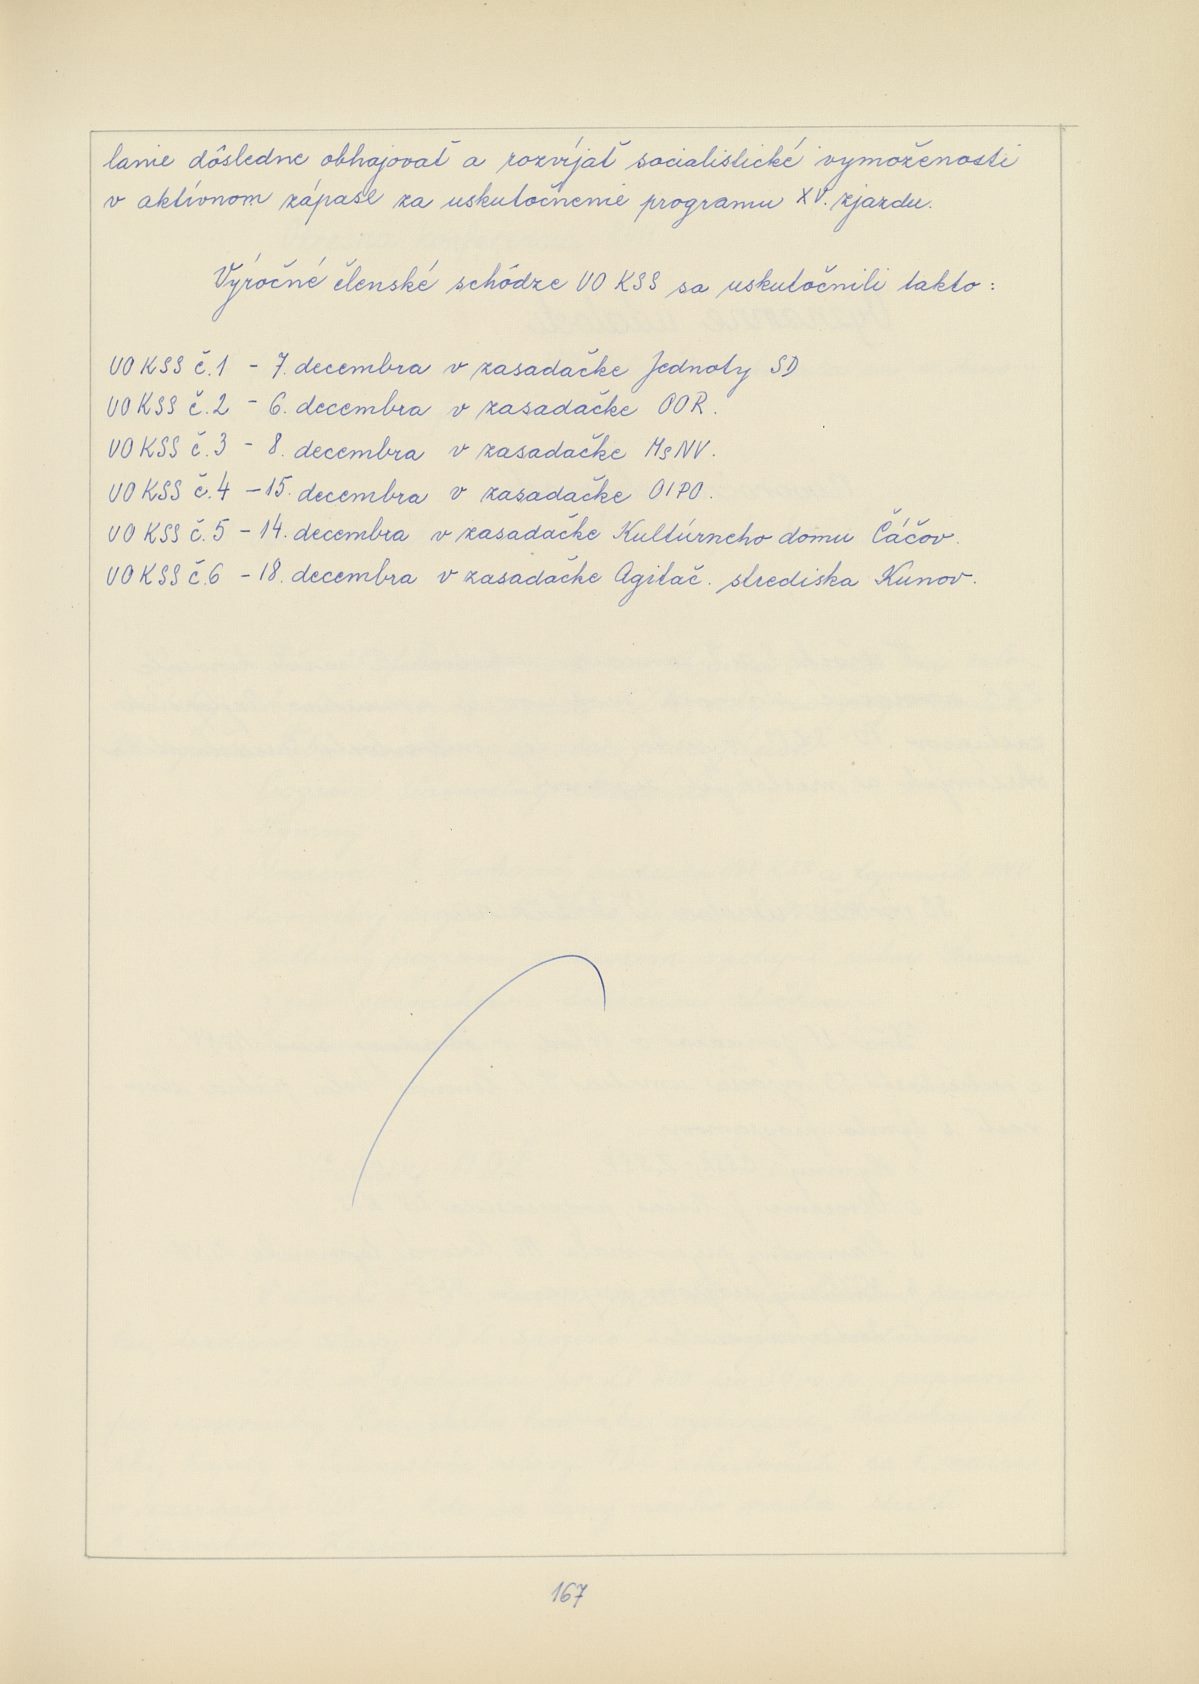 lanie dôsledne obhajovať a rozvíjať socialistické vymoženosti
v aktívnom zápase za uskutočnenie programu XV. zjazdu.
Výročné členské schôdze VO KSS sa uskutočnili takto:
VO KSS č.1 - 7. decembra v zasadačke Jednoty SD
VO KSS č.2 - 6. decembra v zasadačke OOR.
VO KSS č.3 - 8. decembra v zasadačke MsNV.
VO KSS č.4 - 15. decembra v zasadačke OIPO.
VO KSS č.5 - 14. decembra v zasadačke Kultúrneho domu Čáčov.
VO KSS č.6 - 18. decembra v zasadačke Agitač. strediska Kunov.
167